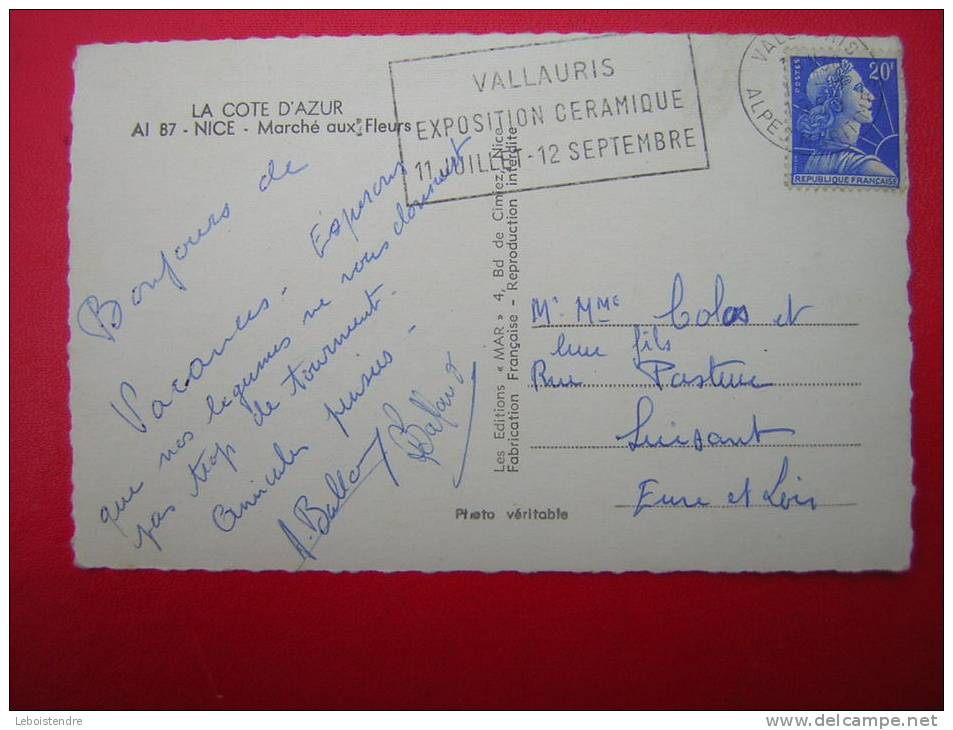 LA COTE D'AZUR
AI 87 - NICE - Marché aux Fleurs
VALLAURIS
EXPOSITION CERAMIQUE
11 JUILLET - 12 SEPTEMBRE
VALLAURIS
ALPES
POSTES
20F
REPUBLIQUE FRANÇAISE
Bonjours de
Vacances - Espérons
que nos légumes ne vous donnent
pas trop de tourment.
Amicales pensées -
Les Editions « MAR » 4, Bd de Cimiez, Nice
Fabrication Française - Reproduction interdite
Mr Mme Colas et
leur fils
Rue Pasteur
Luisant
Eure et Loir
Photo véritable
Leboistendre
www.delcampe.net